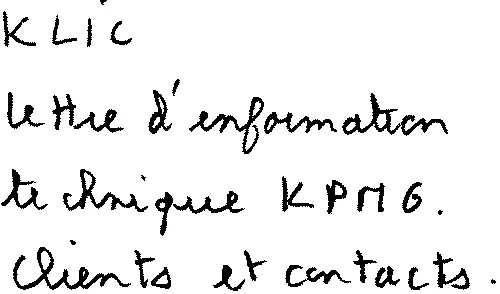 KLIC
lettre d'information
technique KPMG.
Clients et contacts.